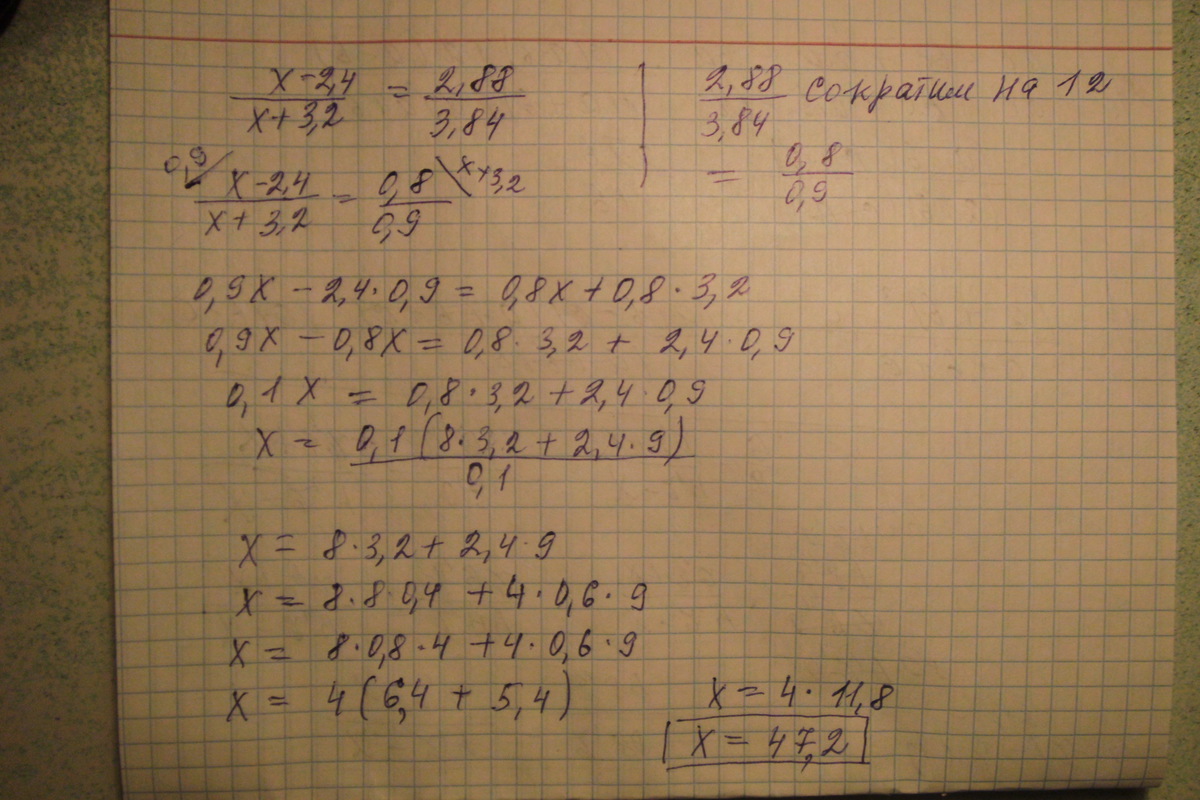 x-2,4 / x+3,2 = 2,88 / 3,84
2,88 / 3,84 сократим на 12
= 0,8 / 0,9
0,9/ x-2,4 / x+3,2 = 0,8 / 0,9 \x+3,2
0,9x - 2,4·0,9 = 0,8x + 0,8·3,2
0,9x - 0,8x = 0,8·3,2 + 2,4·0,9
0,1x = 0,8·3,2 + 2,4·0,9
x = 0,1(8·3,2 + 2,4·9) / 0,1
x = 8·3,2 + 2,4·9
x = 8·8 0,4 + 4·0,6·9
x = 8·0,8·4 + 4·0,6·9
x = 4(6,4 + 5,4)
x = 4·11,8
x = 47,2